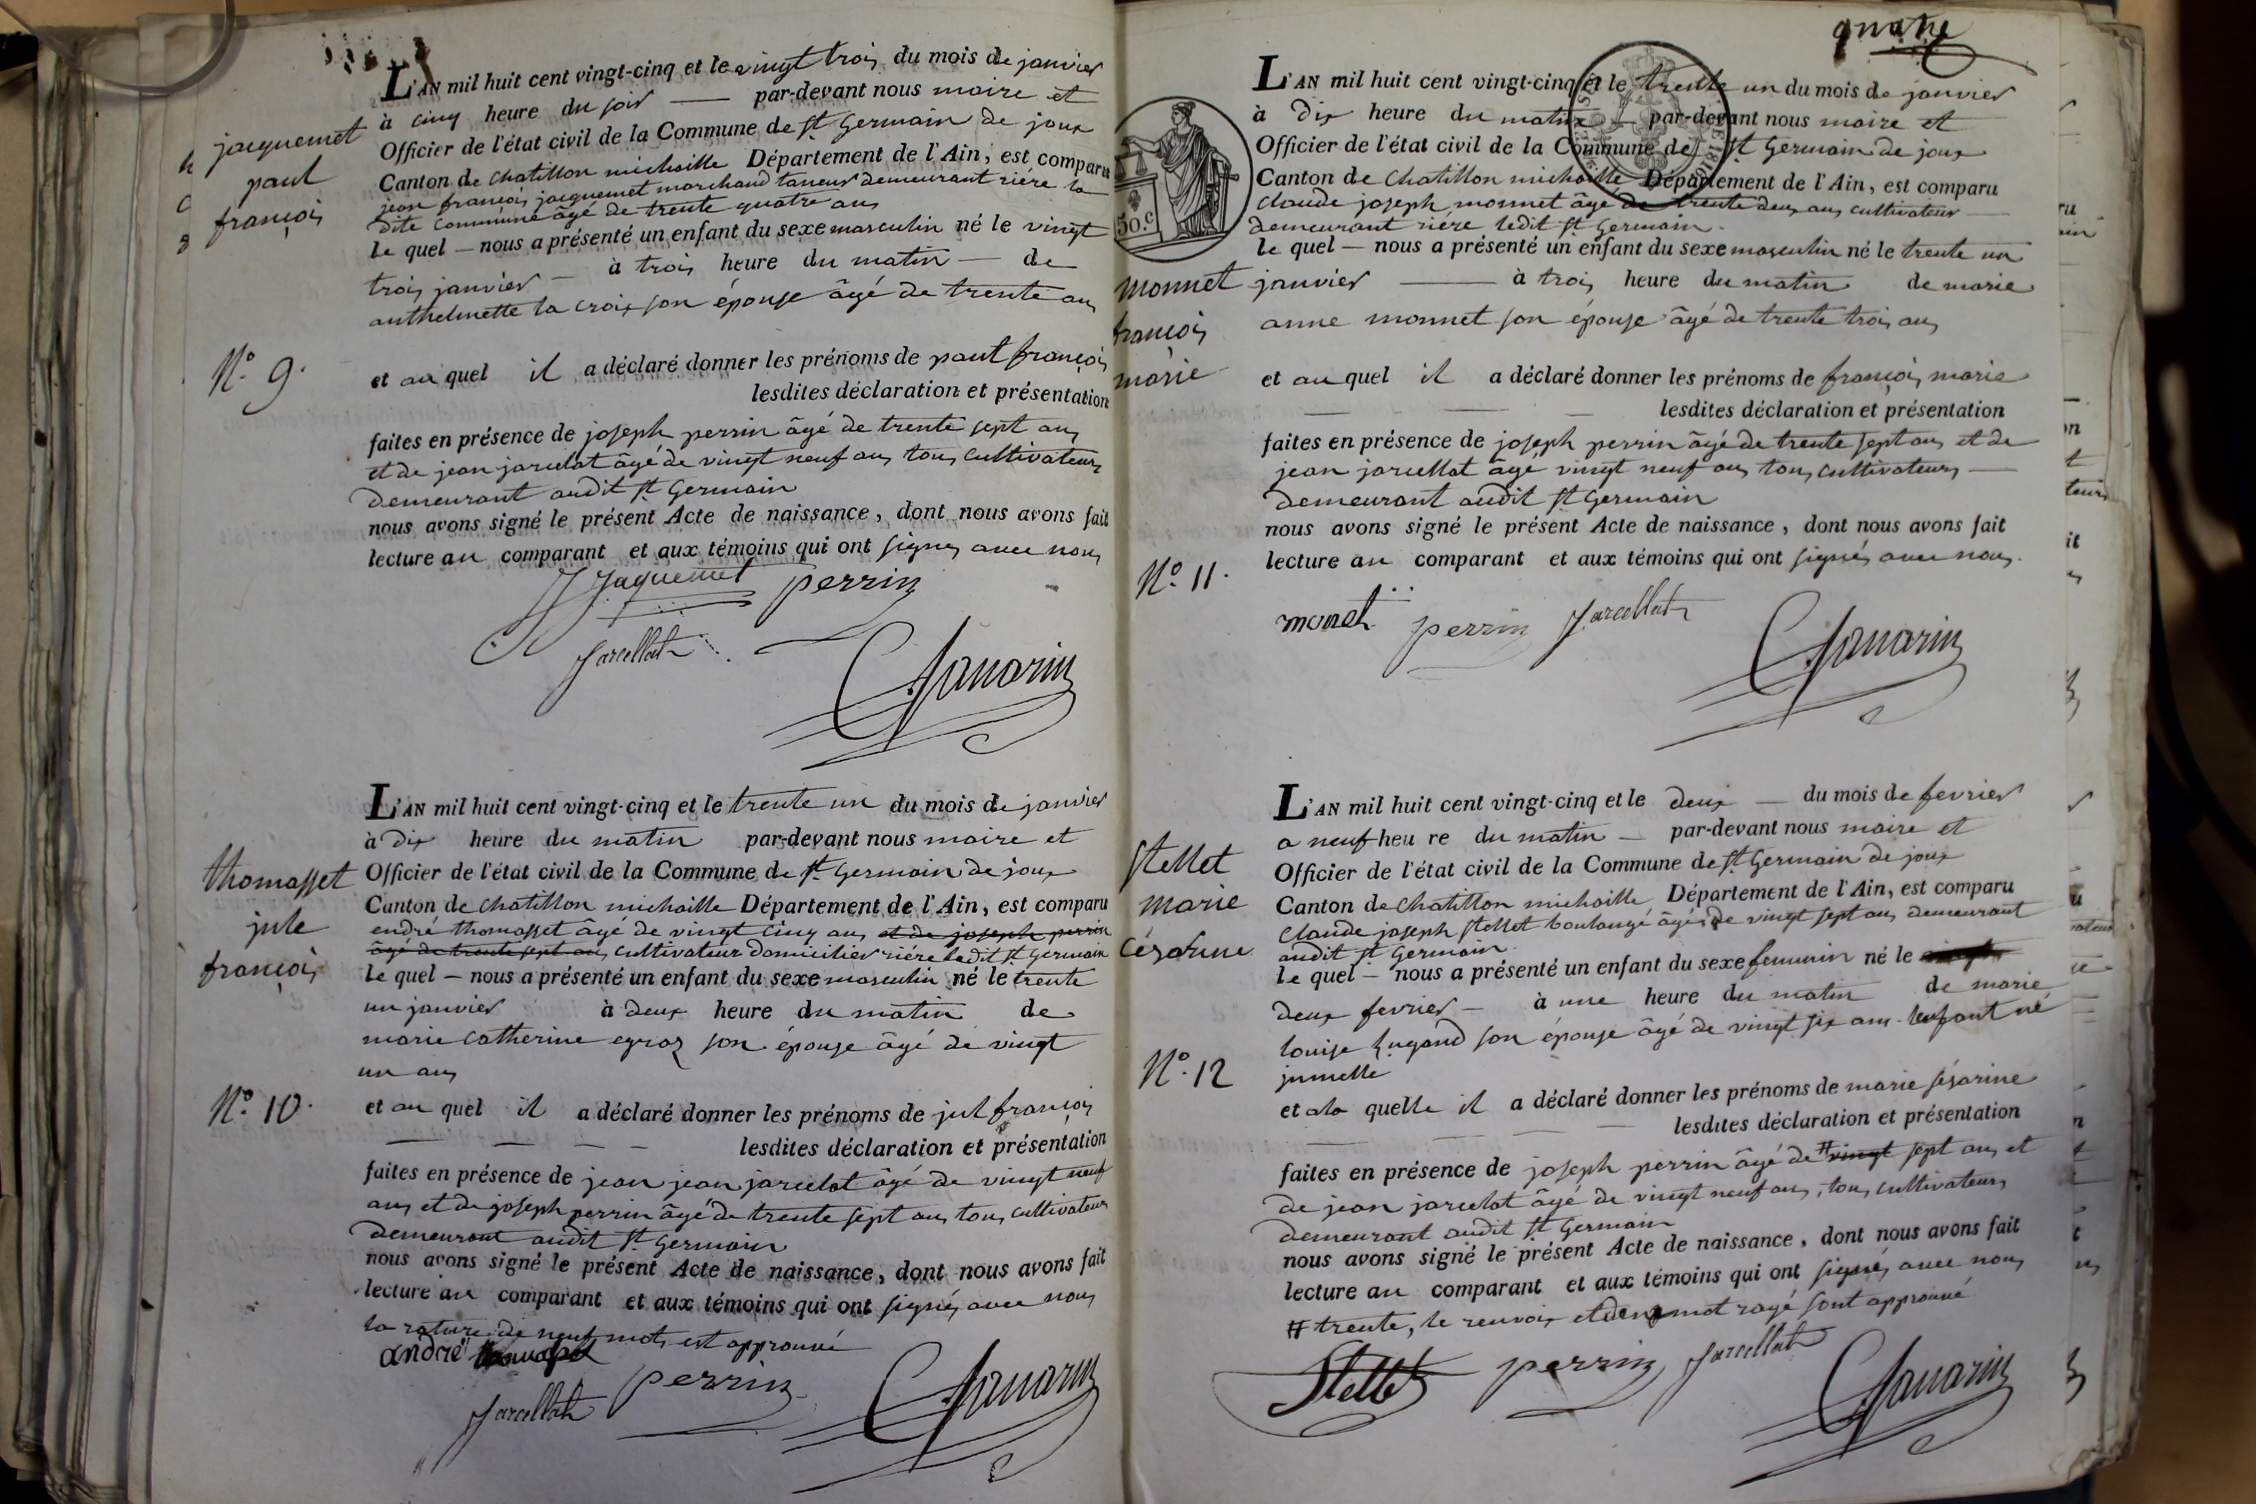 jacquemet
paul
françois
N.° 9.
L'AN mil huit cent vingt-cinq et le vingt trois du mois de janvier
à cinq heure du soir — par-devant nous maire et
Officier de l'état civil de la Commune de St Germain de joux
Canton de chatillon michaille Département de l'Ain, est comparu
jean françois jacquemet marchand taneur demeurant riére la
dite commune âgé de trente quatre ans
le quel — nous a présenté un enfant du sexe masculin né le vingt
trois janvier — à trois heure du matin — de
anthelmette la croix son épouse âgé de trente ans
et au quel il a déclaré donner les prénoms de paul françois
lesdites déclaration et présentation
faites en présence de joseph perrin âgé de trente sept ans
et de jean jarcelat âgé de vingt neuf ans tous cultivateurs
demeurant audit St Germain
nous avons signé le présent Acte de naissance, dont nous avons fait
lecture au comparant et aux témoins qui ont signés avec nous
Jaquemet perrin
Jarcellat
thomasset
jule
françois
N.° 10.
L'AN mil huit cent vingt-cinq et le trente un du mois de janvier
à dix heure du matin par-devant nous maire et
Officier de l'état civil de la Commune de St Germain de joux
Canton de chatillon michaille Département de l'Ain, est comparu
endré thomasset âgé de vingt cinq ans et de joseph perrin
âgé de trente sept ans cultivateur domicilier riére ledit St Germain
le quel — nous a présenté un enfant du sexe masculin né le trente
un janvier à deux heure du matin de
marie catherine egraz son épouse âgé de vingt
un ans
et au quel il a déclaré donner les prénoms de jul françois
lesdites déclaration et présentation
faites en présence de jean jean jarcelat âgé de vingt neuf
ans et de joseph perrin âgé de trente sept ans tous cultivateurs
demeurant audit St Germain
nous avons signé le présent Acte de naissance, dont nous avons fait
lecture au comparant et aux témoins qui ont signés avec nous
la rature de neuf mots est approuvé
andré
Jarcellat perrin
quatre
50.c
monnet
françois
marie
N.° 11.
L'AN mil huit cent vingt-cinq et le trente un du mois de janvier
à dix heure du matin — par-devant nous maire et
Officier de l'état civil de la Commune de St Germain de joux
Canton de chatillon michaille Département de l'Ain, est comparu
claude joseph monnet âgé de trente deux ans cultivateur
demeurant riére ledit St Germain
le quel — nous a présenté un enfant du sexe masculin né le trente un
janvier — à trois heure du matin de marie
anne monnet son épouse âgé de trente trois ans
et au quel il a déclaré donner les prénoms de françois marie
lesdites déclaration et présentation
faites en présence de joseph perrin âgé de trente sept ans et de
jean jarcellat âgé vingt neuf ans tous cultivateurs —
demeurant audit St Germain
nous avons signé le présent Acte de naissance, dont nous avons fait
lecture au comparant et aux témoins qui ont signés avec nous.
monet perrin Jarcellat
Stellet
marie
Césarine
N.° 12
L'AN mil huit cent vingt-cinq et le deux — du mois de fevrier
a neuf heu re du matin — par-devant nous maire et
Officier de l'état civil de la Commune de St Germain de joux
Canton de chatillon michaille Département de l'Ain, est comparu
Claude joseph Stellet boulangé âgés de vingt sept ans demeurant
audit St Germain
le quel — nous a présenté un enfant du sexe feminin né le
deux fevrier — à une heure du matin de marie
louise son épouse âgé de vingt six ans. lenfant né
jumelle
et a la quelle il a déclaré donner les prénoms de marie sésarine
lesdites déclaration et présentation
faites en présence de joseph perrin âgé de # vingt sept ans et
de jean jarcelat âgé de vingt neuf ans, tous cultivateurs
demeurant audit St Germain
nous avons signé le présent Acte de naissance, dont nous avons fait
lecture au comparant et aux témoins qui ont signés avec nous
# trente, le renvois et deux mot rayé sont approuvé
Stellet perrin Jarcellat